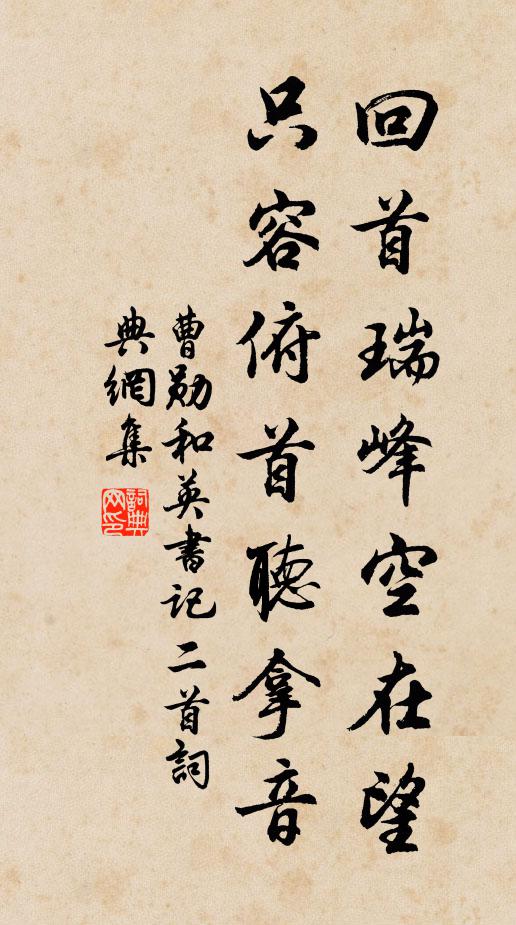 回首瑞峰空在望
只容俯首聽拿音
曹勛和英書記二首詞
典網集
詞典網印